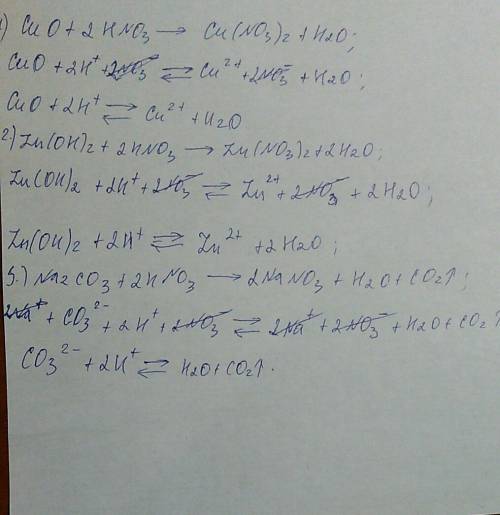 1) CuO + 2HNO₃ → Cu(NO₃)₂ + H₂O;
CuO + 2H⁺ + 2NO₃⁻ ⇄ Cu²⁺ + 2NO₃⁻ + H₂O;
CuO + 2H⁺ ⇄ Cu²⁺ + H₂O
2) Zn(OH)₂ + 2HNO₃ → Zn(NO₃)₂ + 2H₂O;
Zn(OH)₂ + 2H⁺ + 2NO₃⁻ ⇄ Zn²⁺ + 2NO₃⁻ + 2H₂O;
Zn(OH)₂ + 2H⁺ ⇄ Zn²⁺ + 2H₂O;
3.) Na₂CO₃ + 2HNO₃ → 2NaNO₃ + H₂O + CO₂↑;
2Na⁺ + CO₃²⁻ + 2H⁺ + 2NO₃⁻ ⇄ 2Na⁺ + 2NO₃⁻ + H₂O + CO₂↑
CO₃²⁻ + 2H⁺ ⇄ H₂O + CO₂↑.